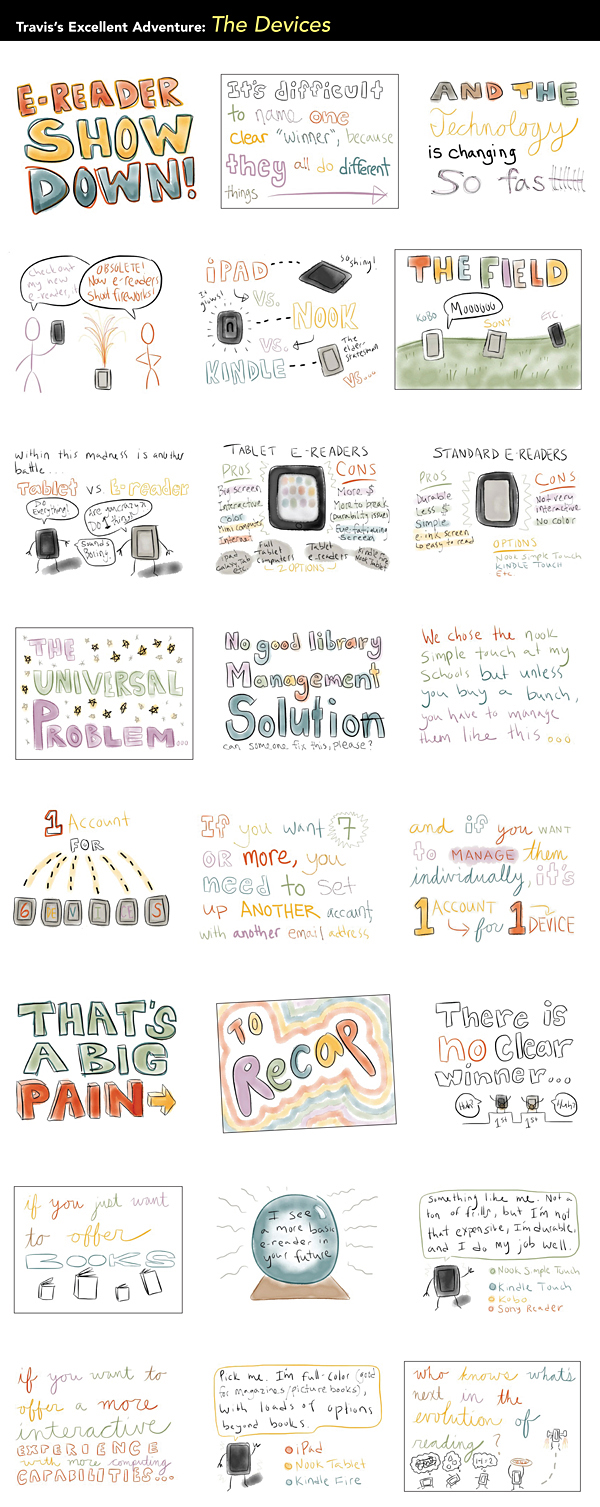 Travis's Excellent Adventure: The Devices
E-READER
SHOW
DOWN!
It's difficult
to name one
clear "winner", because
they all do different
things
AND THE
Technology
is changing
So fast
Check out
my new
e-reader,
OBSOLETE!
Now e-readers
Shoot fireworks!
iPAD
So shiny!
It glows!
VS.
NOOK
VS.
The elder statesman
KINDLE
VS....
THE FIELD
KOBO
Mooooooo
SONY
ETC.
within this madness is another
battle...
Tablet vs. E-reader
Do Everything!
Are you crazy?
Do 1 thing!
Sounds Boring.
TABLET E-READERS
PROS
CONS
Big screen
Interactive
Color
Mini computers
More $
More to break
(durability issue)
Eye-fatiguing
Screen
iPad
Galaxy Tab
Etc.
Full
Tablet
Computers
Tablet
e-readers
Kindle Fire
Nook Tablet
2 OPTIONS
STANDARD E-READERS
PROS
Durable
Less $
Simple
e-ink screen
easy to read
CONS
Not very
interactive
No color
OPTIONS
Nook Simple Touch
KINDLE TOUCH
Etc.
THE
UNIVERSAL
PROBLEM...
No good library
Management
Solution
can someone fix this, please?
We chose the nook
simple touch at my
schools but unless
you buy a bunch,
you have to manage
them like this ...
1 Account
FOR
6 DEVICES
If you want 7
OR more, you
need to set
up ANOTHER account,
with another email address
and if you WANT
to MANAGE them
individually, it's
1 ACCOUNT
for 1 DEVICE
THAT'S
A BIG
PAIN
TO
Recap
There is
no clear
winner...
Huh?
Huh?
1st
1st
if you just want
to offer
BOOKS
I see
a more basic
e-reader in
your future
Something like me. Not a
ton of frills, but I'm not
that expensive, I'm durable,
and I do my job well.
Nook Simple Touch
Kindle Touch
Kobo
Sony Reader
if you want to
offer a more
interactive
EXPERIENCE
with more computing
CAPABILITIES...
Pick me. I'm full-color (good
for magazines/picture books),
with loads of options
beyond books.
iPad
Nook Tablet
Kindle Fire
who knows what's
next in the
evolution of
reading?